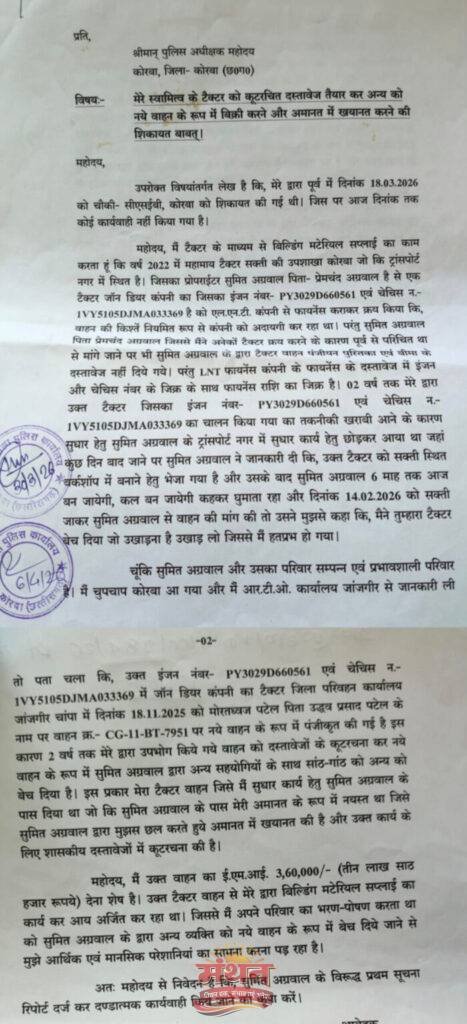 प्रति,
श्रीमान् पुलिस अधीक्षक महोदय
कोरबा, जिला- कोरबा (छ०ग०)
विषयः- मेरे स्वामित्व के टैक्टर को कूटरचित दस्तावेज तैयार कर अन्य को
नये वाहन के रूप में बिक्री करने और अमानत में खयानत करने की
शिकायत बाबत्।
महोदय,
उपरोक्त विषयांतर्गत लेख है कि, मेरे द्वारा पूर्व में दिनांक 18.03.2026
को चौकी- सीएसईबी, कोरबा को शिकायत की गई थी। जिस पर आज दिनांक तक
कोई कार्यवाही नहीं किया गया है।
महोदय, मैं टैक्टर के माध्यम से बिल्डिंग मटेरियल सप्लाई का काम
करता हूं कि वर्ष 2022 में महामाय टैक्टर सक्ती की उपशाखा कोरबा जो कि ट्रांसपोर्ट
नगर में स्थित है। जिसका प्रोपराईटर सुमित अग्रवाल पिता- प्रेमचंद अग्रवाल है से एक
टैक्टर जॉन डियर कंपनी का जिसका इंजन नंबर- PY3029D660561 एवं चेचिस न.-
1VY5105DJMA033369 है को एल.एन.टी. कंपनी से फायनेंस कराकर क्रय किया कि,
वाहन की किश्तें नियमित रूप से कंपनी को अदायगी कर रहा था। परंतु सुमित अग्रवाल
पिता प्रेमचंद अग्रवाल जिससे मैंने अनेकों टैक्टर क्रय करने के कारण पूर्व से परिचित था
से मांगे जाने पर भी सुमित अग्रवाल के द्वारा टैक्टर वाहन पंजीयन पुस्तिका एवं बीमा के
दस्तावेज नहीं दिये गये। परंतु LNT फायनेंस कंपनी के फायनेंस के दस्तावेज में इंजन
और चेचिस नंबर के जिक्र के साथ फायनेंस राशि का जिक्र है। 02 वर्ष तक मेरे द्वारा
उक्त टैक्टर जिसका इंजन नंबर- PY3029D660561 एवं चेचिस न.-
1VY5105DJMA033369 का चालन किया गया का तकनीकी खराबी आने के कारण
सुधार हेतु सुमित अग्रवाल के ट्रांसपोर्ट नगर में सुधार कार्य हेतु छोड़कर आया था जहां
कुछ दिन बाद जाने पर सुमित अग्रवाल ने जानकारी दी कि, उक्त टैक्टर को सक्ती स्थित
वर्कशॉप में बनाने हेतु भेजा गया है और उसके बाद सुमित अग्रवाल 6 माह तक आज
बन जायेगी, कल बन जायेगी कहकर घुमाता रहा और दिनांक 14.02.2026 को सक्ती
जाकर सुमित अग्रवाल से वाहन की मांग की तो उसने मुझसे कहा कि, मैने तुम्हारा टैक्टर
बेच दिया जो उखाड़ना है उखाड़ लो जिससे मैं हतप्रभ हो गया।
चूंकि सुमित अग्रवाल और उसका परिवार सम्पन्न एवं प्रभावशाली परिवार
है। मैं चुपचाप कोरबा आ गया और मैं आर.टी.ओ. कार्यालय जांजगीर से जानकारी ली
6/4/26
-02-
तो पता चला कि, उक्त इंजन नंबर- PY3029D660561 एवं चेचिस न.-
1VY5105DJMA033369 में जॉन डियर कंपनी का टैक्टर जिला परिवहन कार्यालय
जांजगीर चांपा में दिनांक 18.11.2025 को मोरतध्वज पटेल पिता उद्धव प्रसाद पटेल के
नाम पर वाहन क्र.- CG-11-BT-7951 पर नये वाहन के रूप में पंजीकृत की गई है इस
कारण 2 वर्ष तक मेरे द्वारा उपभोग किये गये वाहन को दस्तावेजों के कूटरचना कर नये
वाहन के रूप में सुमित अग्रवाल द्वारा अन्य सहयोगियों के साथ सांठ-गांठ को अन्य को
बेच दिया है। इस प्रकार मेरा टैक्टर वाहन जिसे मैं सुधार कार्य हेतु सुमित अग्रवाल के
पास दिया था जो कि सुमित अग्रवाल के पास मेरी अमानत के रूप में नयस्त था जिसे
सुमित अग्रवाल द्वारा मुझसे छल करते हुये अमानत में खयानत की है और उक्त कार्य के
लिए शासकीय दस्तावेजों में कूटरचना की है।
महोदय, मैं उक्त वाहन का ई.एम.आई. 3,60,000/- (तीन लाख साठ
हजार रूपये) देना शेष है। उक्त टैक्टर वाहन से मेरे द्वारा बिल्डिंग मटेरियल सप्लाई का
कार्य कर आय अर्जित कर रहा था। जिससे मैं अपने परिवार का भरण-पोषण करता था
को सुमित अग्रवाल के द्वारा अन्य व्यक्ति को नये वाहन के रूप में बेच दिये जाने से
मुझे आर्थिक एवं मानसिक परेशानियां का सामना करना पड़ रहा है।
मंथन
अतः महोदय से निवेदन है कि, सुमित अग्रवाल के विरूद्ध प्रथम सूचना
रिपोर्ट दर्ज कर दण्डात्मक कार्यवाही किये जाने की कृपा करें।